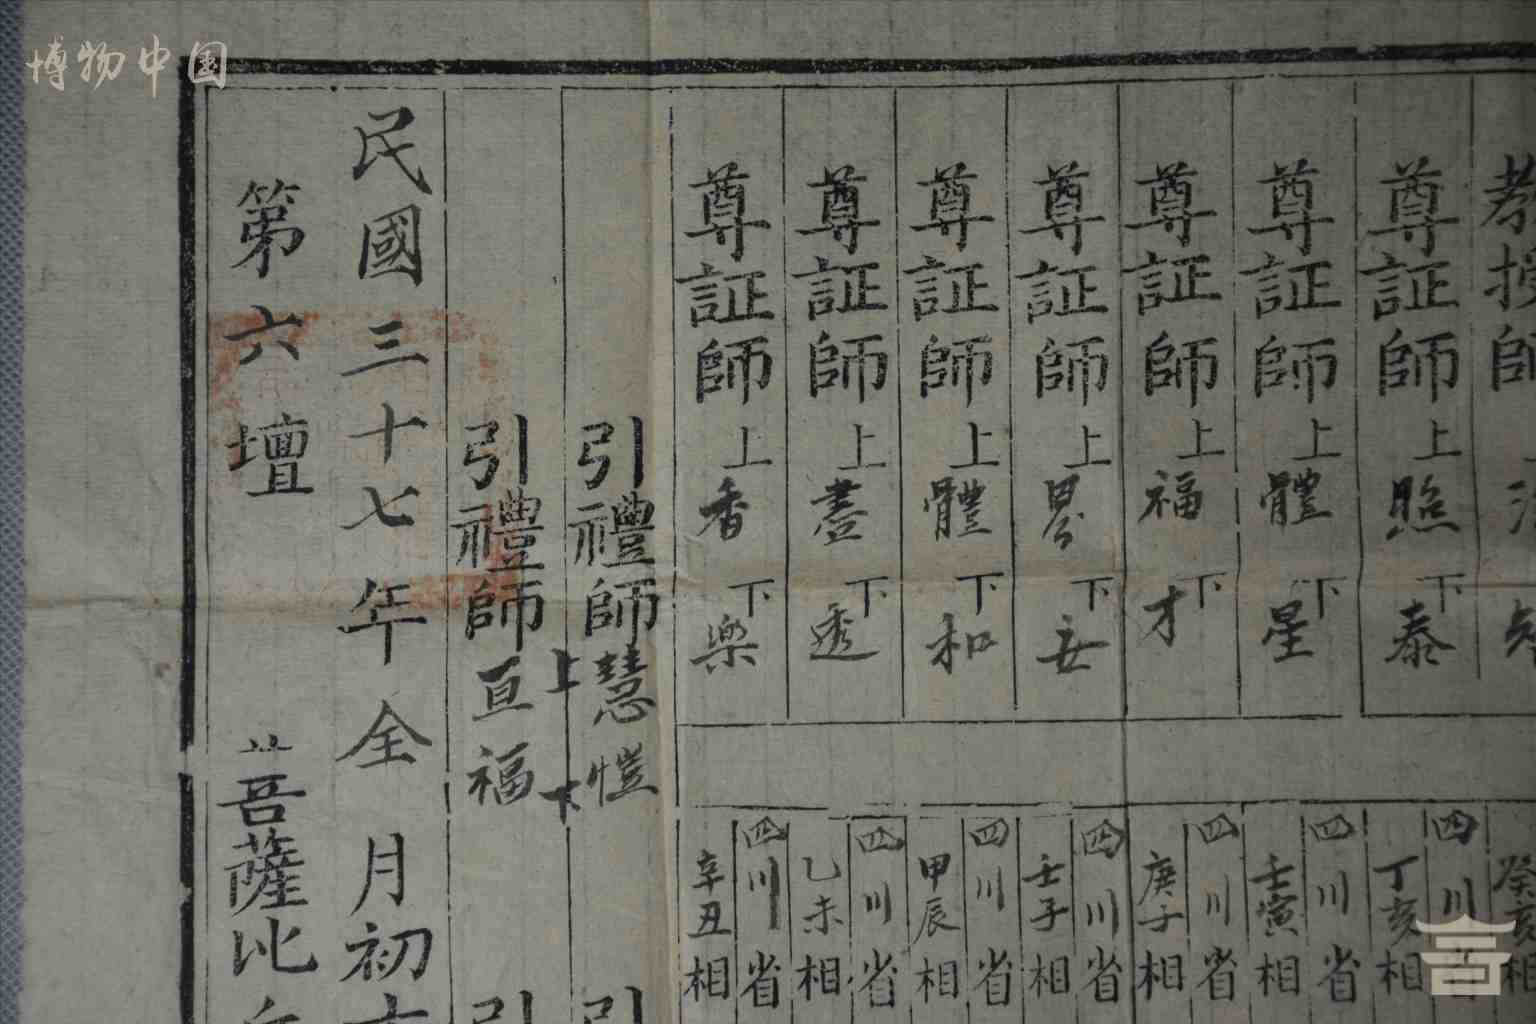 博物中国
教授師
尊証師上照下泰
尊証師上體下星
尊証師上福下才
尊証師上昙下玄
尊証師上體下和
尊証師上盡下透
尊証師上香下樂
引禮師上慧下愷
引禮師亘福
民國三十七年全月初
第六壇 菩薩比
癸亥相
四川
丁亥相
四川省
壬寅相
四川省
庚子相
四川省
壬子相
四川省
甲辰相
四川省
乙未相
四川省
辛丑相
引
引